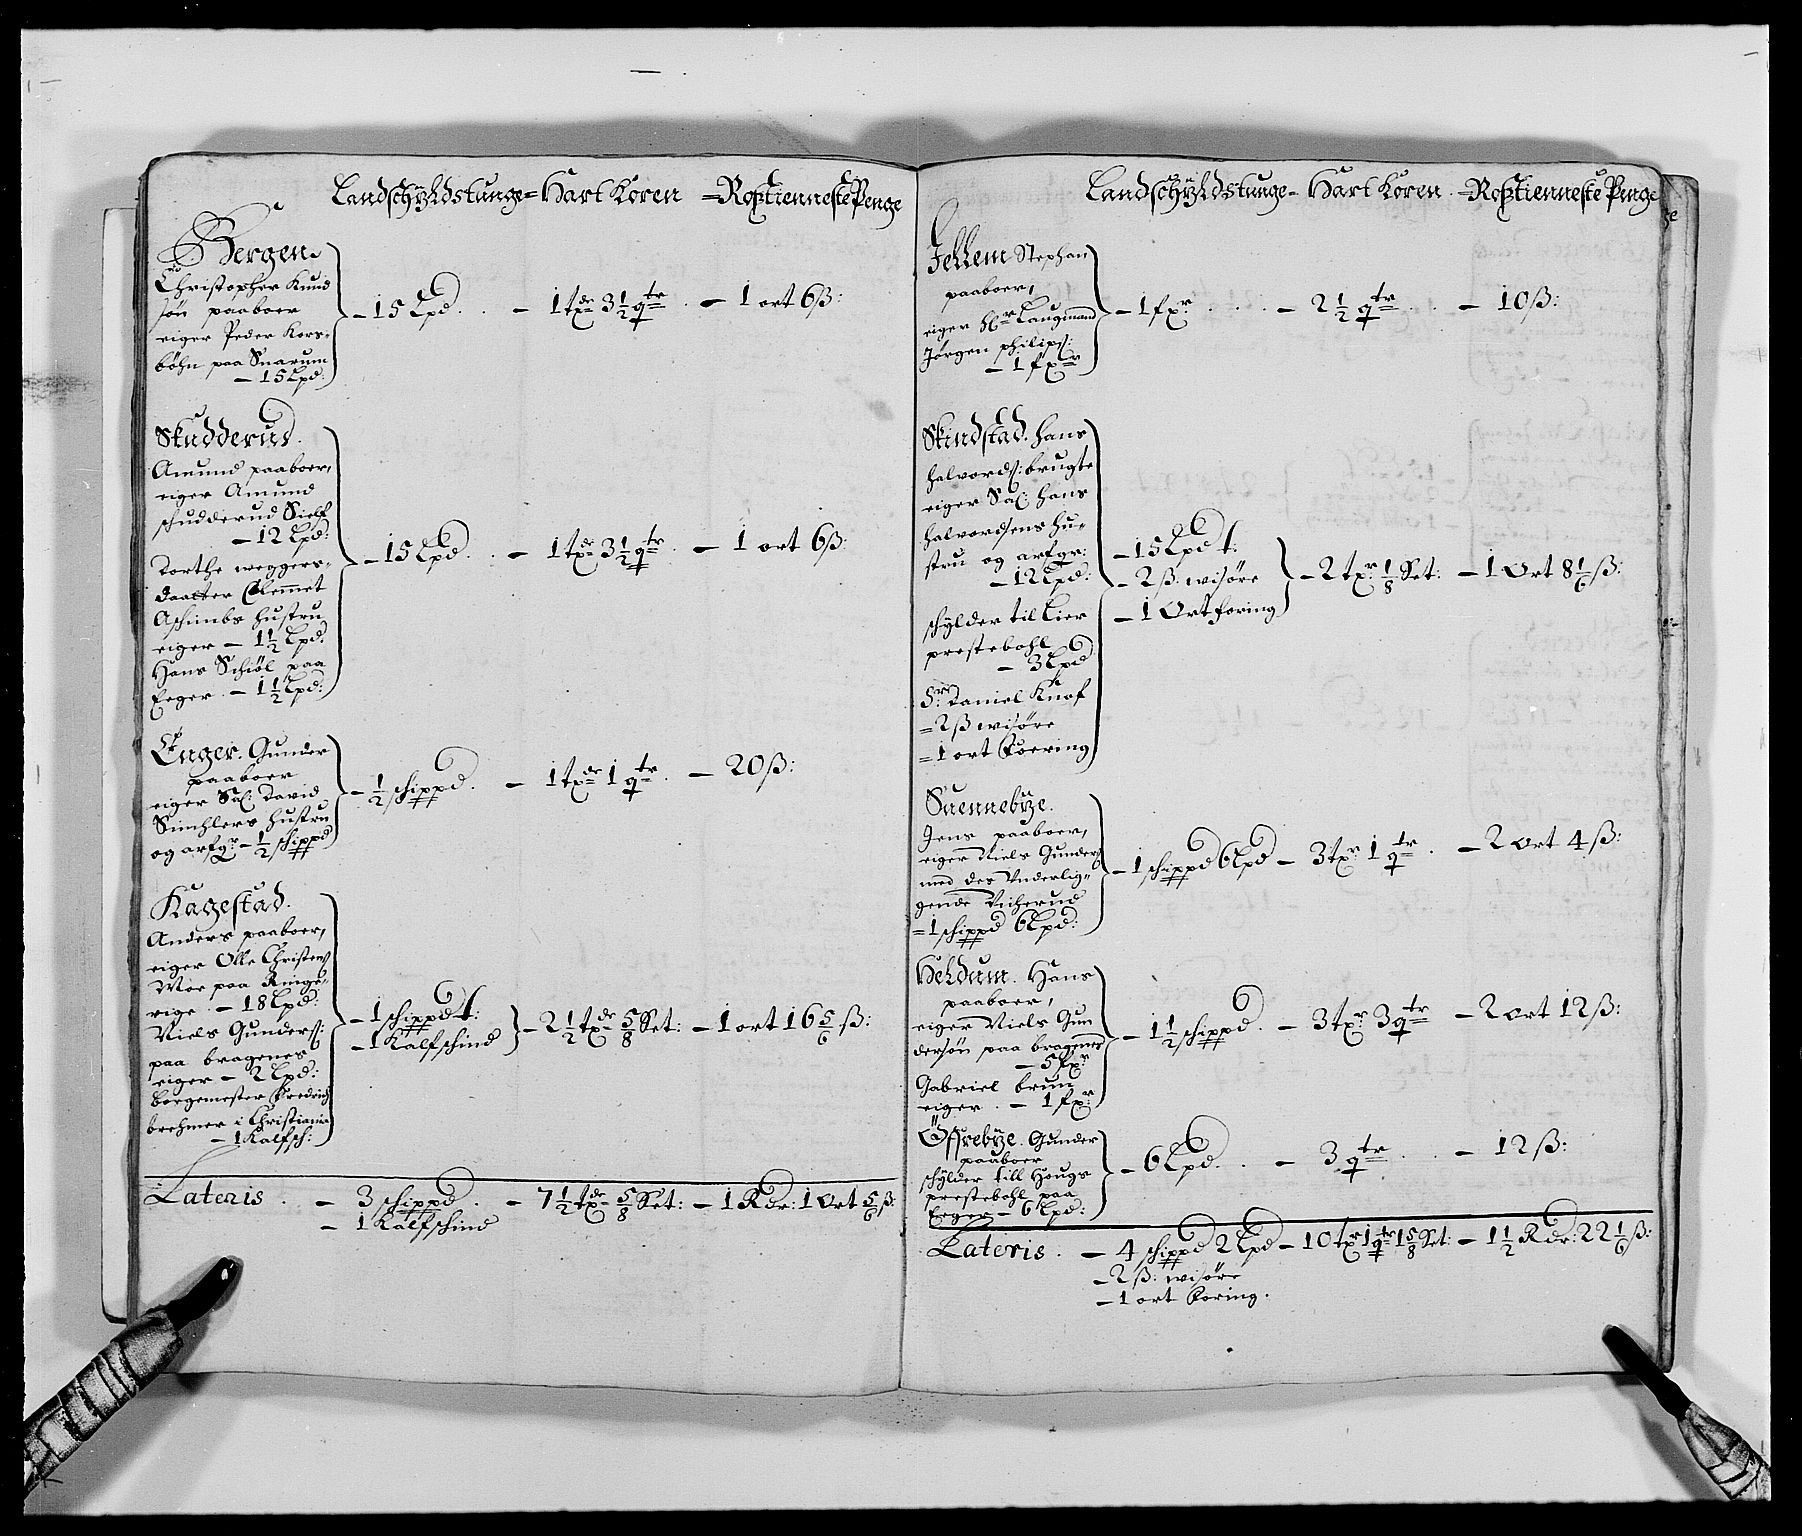 Landschÿldstunge = Hart Koren = Rostienneste Penge
Bergen.
Christopher Knud
søn paaboer
eiger Peder Kors-
böhn paa Snarum
- 15 Lpd:
- 15 Lpd. . - 1 tdr 3½ qtr . - 1 ort 6 ß:
Skudderud.
Amund paaboer,
eiger Amund
schudderud Sielf
- 12 Lpd:
Dorthe weggers-
daatter Clemmet
Aschimbs hustru
eiger - 1½ Lpd.
Hans Schiöl paa
Eger - 1½ Lpd:
- 15 Lpd . . - 1 tdr 3½ qtr . - 1 ort 6 ß:
Enger. Gunder
paaboer
eiger Sal: David
Simchlers hustru
og arfgr - ½ schippd
- ½ schippd . - 1 tdr 1 qtr . - 20 ß:
Kagestad.
Anders paaboer,
eiger Olle Christens
Moe paa Ringe-
rige - 18 Lpd:
Niels Gunderß:
paa bragenes
eiger - 2 Lpd:
borgemester Fredrich
brehmer i Christiania
- 1 Kalfsch:
- 1 schippd t:
- 1 Kalfschind
- 2½ tdr ⅝ Set: - 1 ort 16 5/6 ß:
Lateris . - 3 schippd . - 7½ tdr ⅝ Set: - 1 Rdr: 1 Ort 5/6 ß.
- 1 Kalfschind
Landschÿldstunge - Hart Koren . = Rostienneste Penge
Jellem Stephan
paaboer,
eiger Hr Laugmand
Jörgen philipß:
- 1 fxr
- 1 fxr . . . - 2½ qtr . . - 10 ß:
Skindstad. hans
halvordß: brugte
eiger Sal: hans
halvordsens hu-
stru og arfgr:
- 12 Lpd:
schylder til Lier
prestebohl
- 3 Lpd
Sr Daniel Knof
= 2 ß wisöre
= 1 ort Foering
- 15 Lpd t:
- 2 ß. wisöre
- 1 Ort foring
- 2 txr ⅛ Set: - 1 Ort 8 1/6 ß:
Suennebÿe.
Jens paaboer,
eiger Niels Gunders
med des Vnderlig-
gende Vicherud
= 1 schippd 6 Lpd:
- 1 schippd 6 Lpd - 3 txr 1 qtr . - 2 ort 4 ß:
Heldum. Hans
paaboer,
eiger Niels Gun
dersön paa bragenes
- 5 fxr
Gabriel brun
eiger . - 1 fxr:
- 1½ schippd . - 3 txr 3 qtr - 2 ort 12 ß:
Öffrebÿe. Gunder
paaboer
schylder till Hougs
prestebohl paa
Eeger - 6 Lpd:
- 6 Lpd. . - 3 qtr . . - 12 ß:
Lateris . - 4 schippd 2 Lpd - 10 txr 1 qtr 1⅝ Set: - 1½ Rdr: 22 1/6 ß:
- 2 ß: wisöre
- 1 ort Foring.